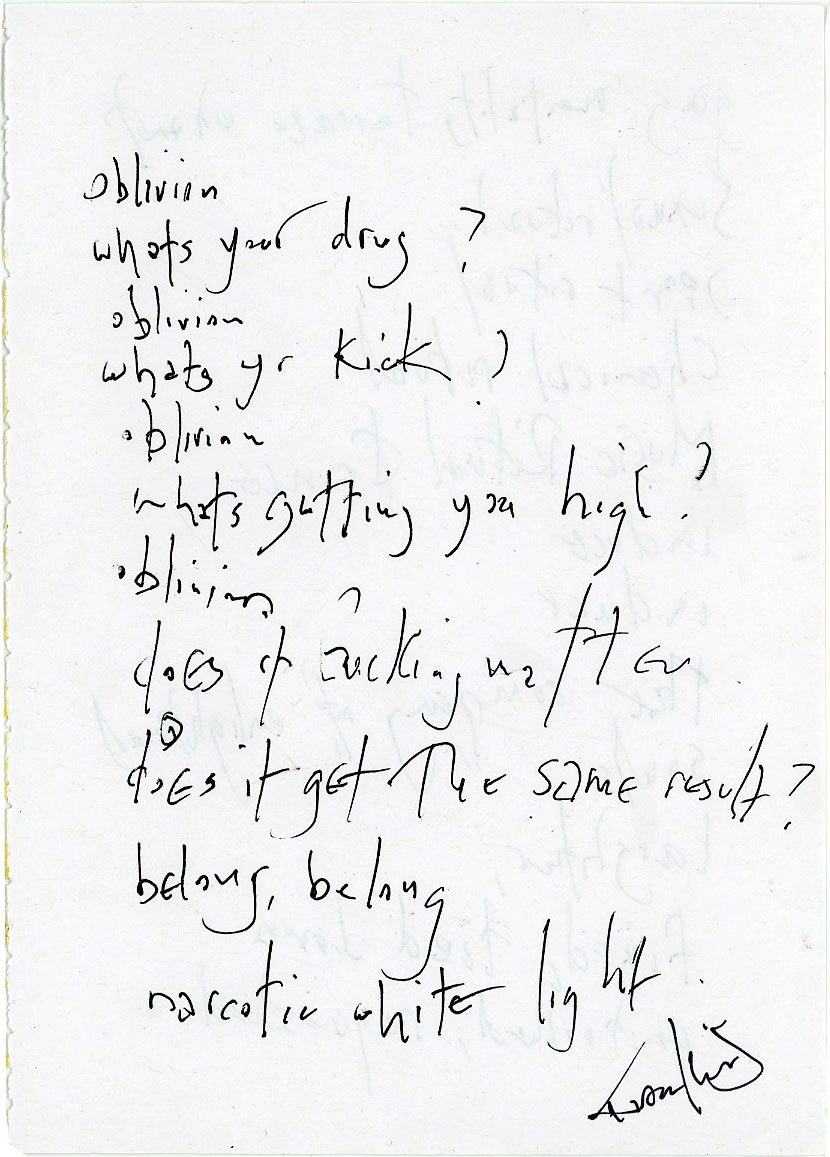 oblivion
whats your drug ?
oblivion
whats yr kick ?
oblivion
whats getting you high ?
oblivion ?
does it fucking matter
does it get the same result ?
belong, belong
narcotic white light.